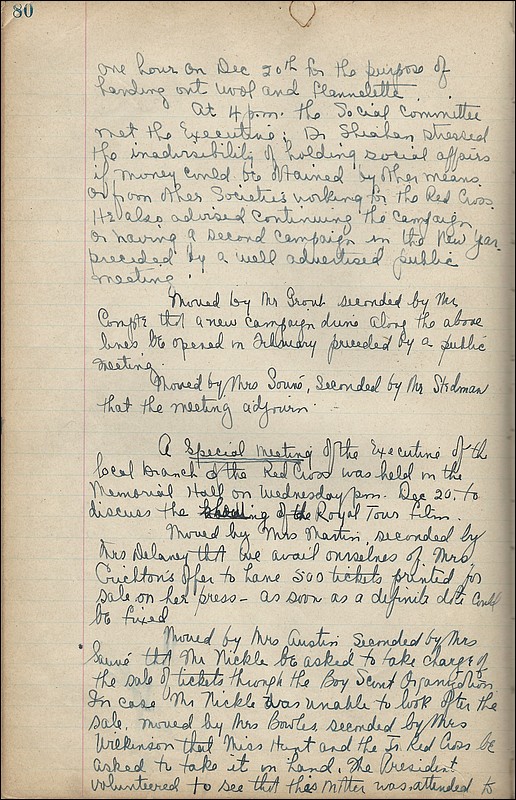 80
one hour on Dec 20th for the purpose of
handing out wool and Flannelette
At 4 p.m. the Social Committee
met the Executive; Dr Sheahan stressed
the inadvisibility of holding social affairs
if money could be obtained by other means.
or from other Societies working for the Red Cross.
He also advised continuing the campaign
or having a second campaign in the New Year.
preceded by a well advertised public
meeting.
Moved by Mr Grout seconded by Mr
Compte that a new campaign drive along the above
lines be opened in February preceded by a public
meeting
Moved by Mrs Sauvé, Seconded by Mr Stedman
that the meeting adjourn.
A Special Meeting of the Executive of the
local branch of the Red Cross was held in the
Memorial Hall on Wednesday p.m. Dec 20. to
discuss the of the Royal Tour Film.
Moved by Mrs Martin, seconded by
Mrs Delaney that we avail ourselves of Mrs
Crichton's offer to have 500 tickets printed for
sale on her press - as soon as a definite date could
be fixed
Moved by Mrs Austin Seconded by Mrs
Sauvé that Mr Nickle be asked to take charge of
the sale of tickets through the Boy Scout Organization
In case Mr Nickle was unable to look after the
sale, moved by Mrs Bowles, seconded by Mrs
Wilkinson that Miss Hunt and the Jr. Red Cross be
asked to take it in hand. The President
volunteered to see that this matter was attended to